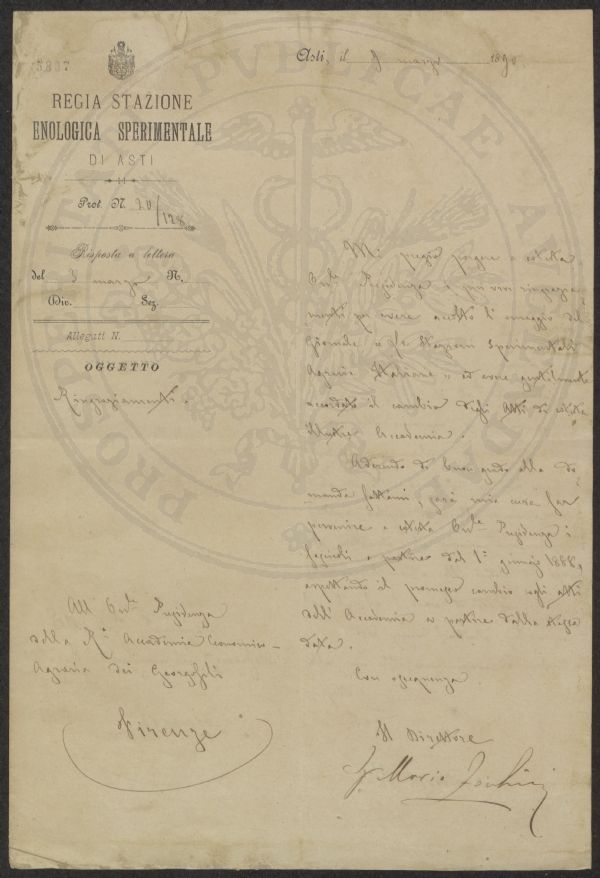 5837
Asti, il 9 marzo 1890
REGIA STAZIONE
ENOLOGICA SPERIMENTALE
DI ASTI
Prot. N. 20/128
Risposta a lettera
del 3 marzo N.
Div. Sez.
Allegati N.
OGGETTO
Ringraziamenti.
Mi pregio porgere a cotesta
On.le Presidenza i più vivi ringrazia-
menti per avere accolto l'omaggio del
Giornale Le Stazioni Sperimentali
Agrarie Italiane ed avere gentilmente
accordato il cambio degli Atti di cotesta
illustre Accademia.
Aderendo di buon grado alla do-
manda fattami, sarà mia cura far
pervenire a cotesta On.le Presidenza i
fascicoli a partire dal 1° gennaio 1888,
aspettando il promesso cambio cogli atti
dell'Accademia a partire dalla stessa
data.
Con ossequenza
Il Direttore
Mario Zecchini
All'On.le Presidenza
della R.a Accademia Economico-
Agraria dei Georgofili
Firenze
PROSPERITATI PUBLICAE AUGENDAE